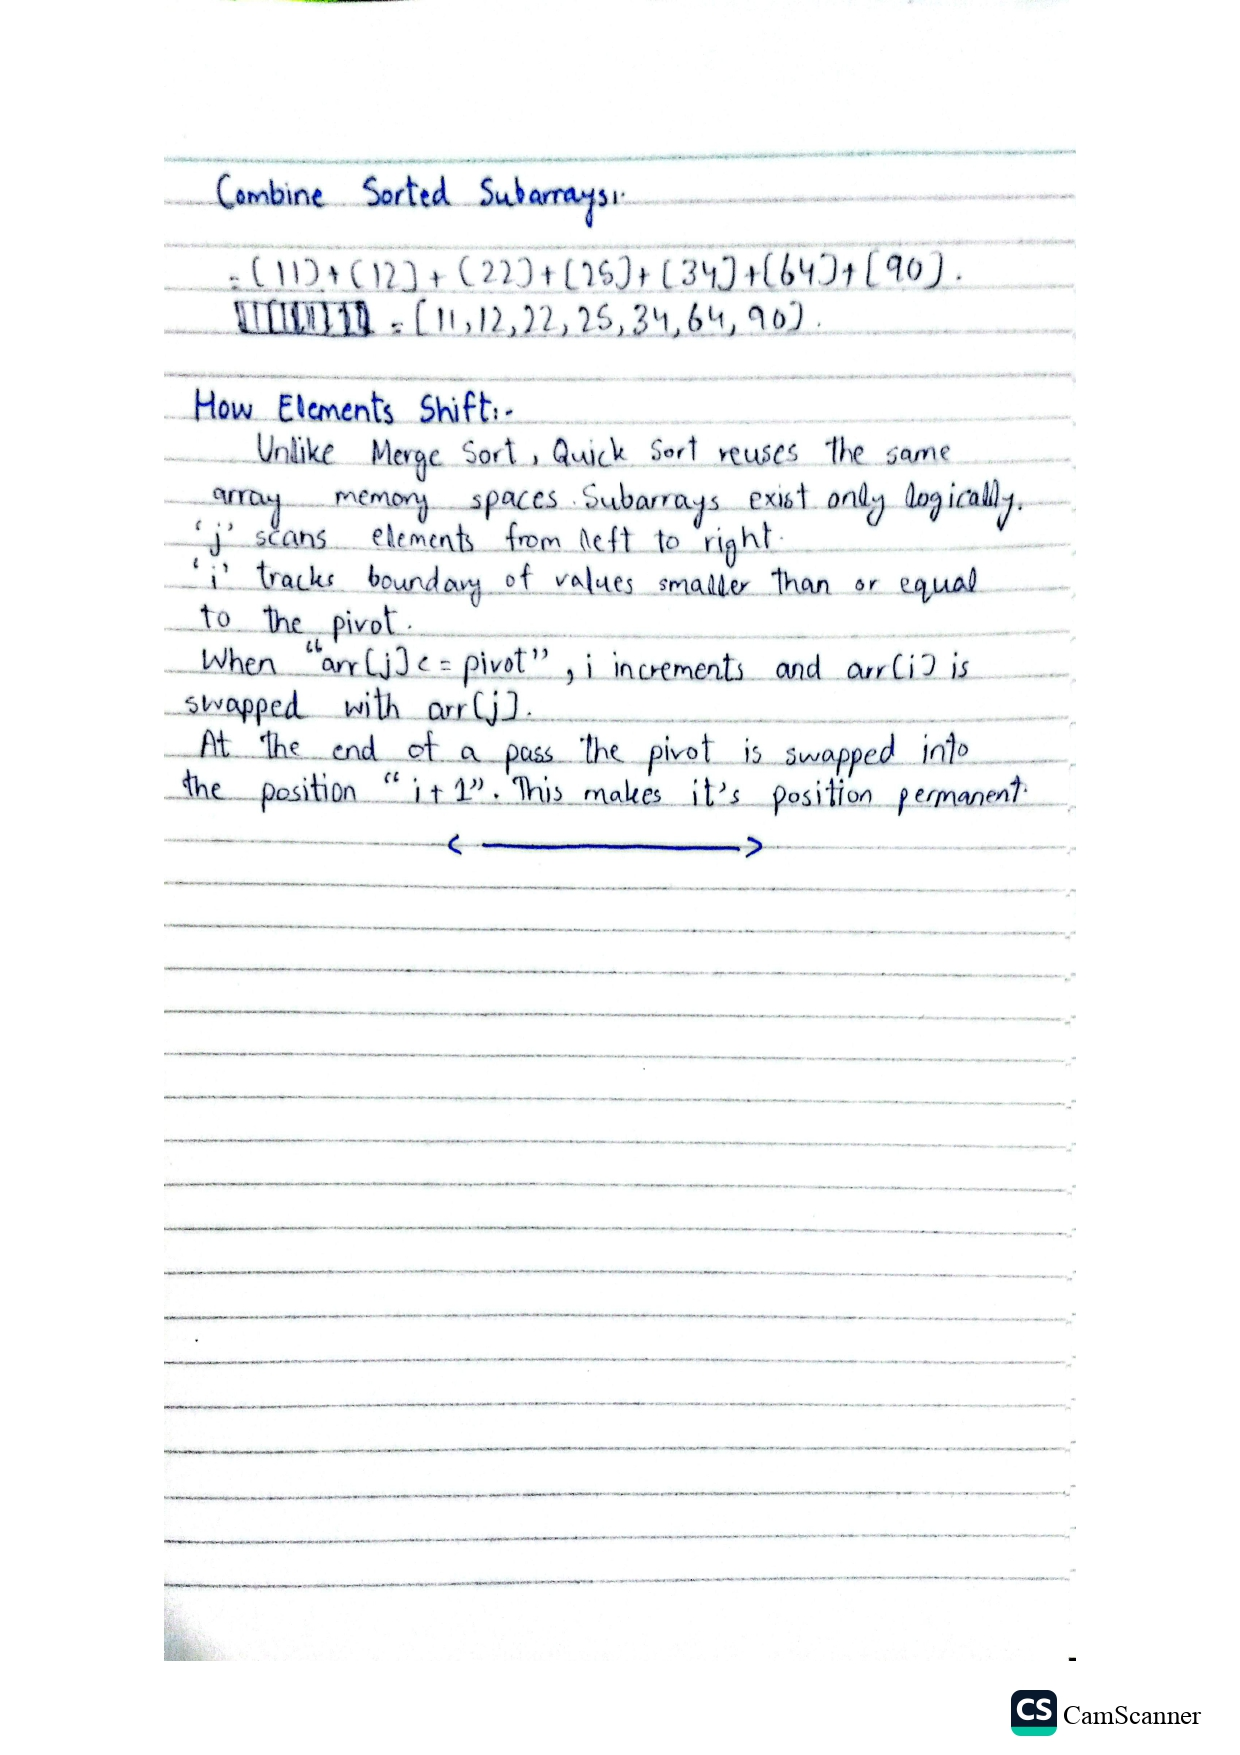 Combine Sorted Subarrays:-
= [11]+[12]+[22]+[25]+[34]+[64]+[90].
= [11,12,22,25,34,64,90].
How Elements Shift:-
Unlike Merge Sort, Quick Sort reuses the same
array memory spaces. Subarrays exist only logically.
'j' scans elements from left to right.
'i' tracks boundary of values smaller than or equal
to the pivot.
When "arr[j]<= pivot", i increments and arr[i] is
swapped with arr[j].
At the end of a pass the pivot is swapped into
the position "i+1". This makes it's position permanent.
CS CamScanner